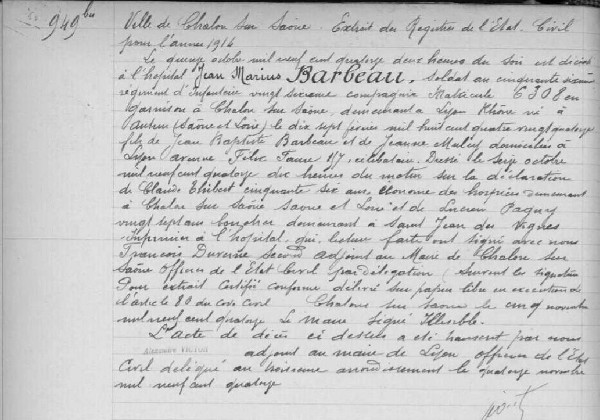 949 bis
Ville de Chalon sur Saône. Extrait des Registres de l'Etat Civil
pour l'année 1914
Le quinze octobre mil neuf cent quatorze deux heures du soir est décédé
à l'hôpital Jean Marius Barbeau, soldat au cinquante sixième
régiment d'Infanterie vingt sixième compagnie Matricule 6308 en
garnison à Chalon sur Saône, demeurant à Lyon Rhône né à
Autun (Saône et Loire) le dix sept février mil huit cent quatre vingt quatorze
fils de Jean Baptiste Barbeau et de Jeanne domiciliés à
Lyon avenue Félix Faure 117 célibataire. Dressé le seize octobre
mil neuf cent quatorze dix heures du matin sur la déclaration
de Claude cinquante six ans économe des hospices demeurant
à Chalon sur Saône Saône et Loire et de Lucien Pagny
vingt sept ans demeurant à Saint Jean des Vignes
infirmier à l'hôpital, qui, lecture faite ont signé avec nous
François Duverne second adjoint au Maire de Chalon sur
Saône Officier de l'Etat Civil par délégation (Suivent les signatures
Pour extrait certifié conforme délivré sur papier libre en exécution de
l'article 80 du Code Civil Chalon sur Saône le cinq novembre
mil neuf cent quatorze Le maire signé Illisible.
L'acte de décès ci dessus a été transcrit par nous
adjoint au maire de Lyon officier de l'Etat
Civil délégué au troisième arrondissement le quatorze novembre
mil neuf cent quatorze